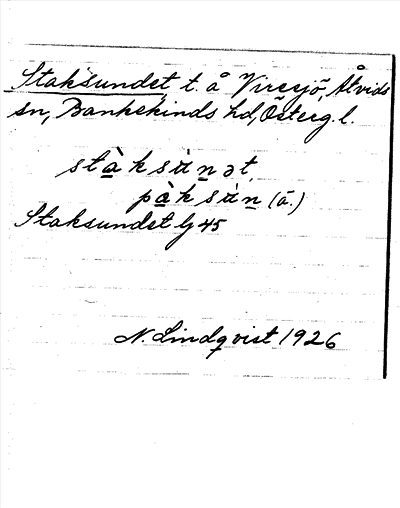 Staksundet, t. å Viresjö, Åtvids
sn, Bankekinds hd, Österg. l.
stàksùnət
pàksùn (ä.)
Staksundet Gj 45
N. Lindqvist 1926